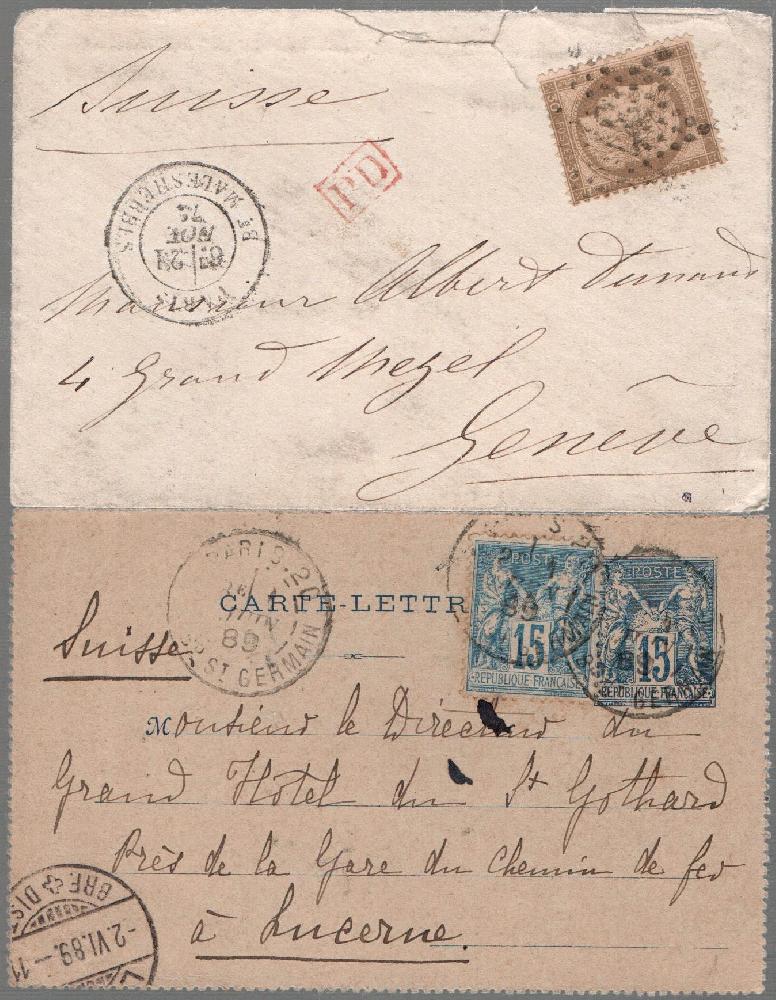 Suisse
PD
PARIS
6E 23
NOV
74
Bt MALESHERBES
Monsieur Albert Dunand
4 Grand Mezel
Genève
PARIS
JUIN
89
Bd St GERMAIN
CARTE-LETTR
POSTE
15
REPUBLIQUE FRANCAISE
POSTE
15
REPUBLIQUE FRANCAISE
Suisse
Monsieur le Directeur du
Grand Hôtel du St Gothard
Près de la Gare du Chemin de fer
à Lucerne.
BRF DIST
-2.VI.89.-11